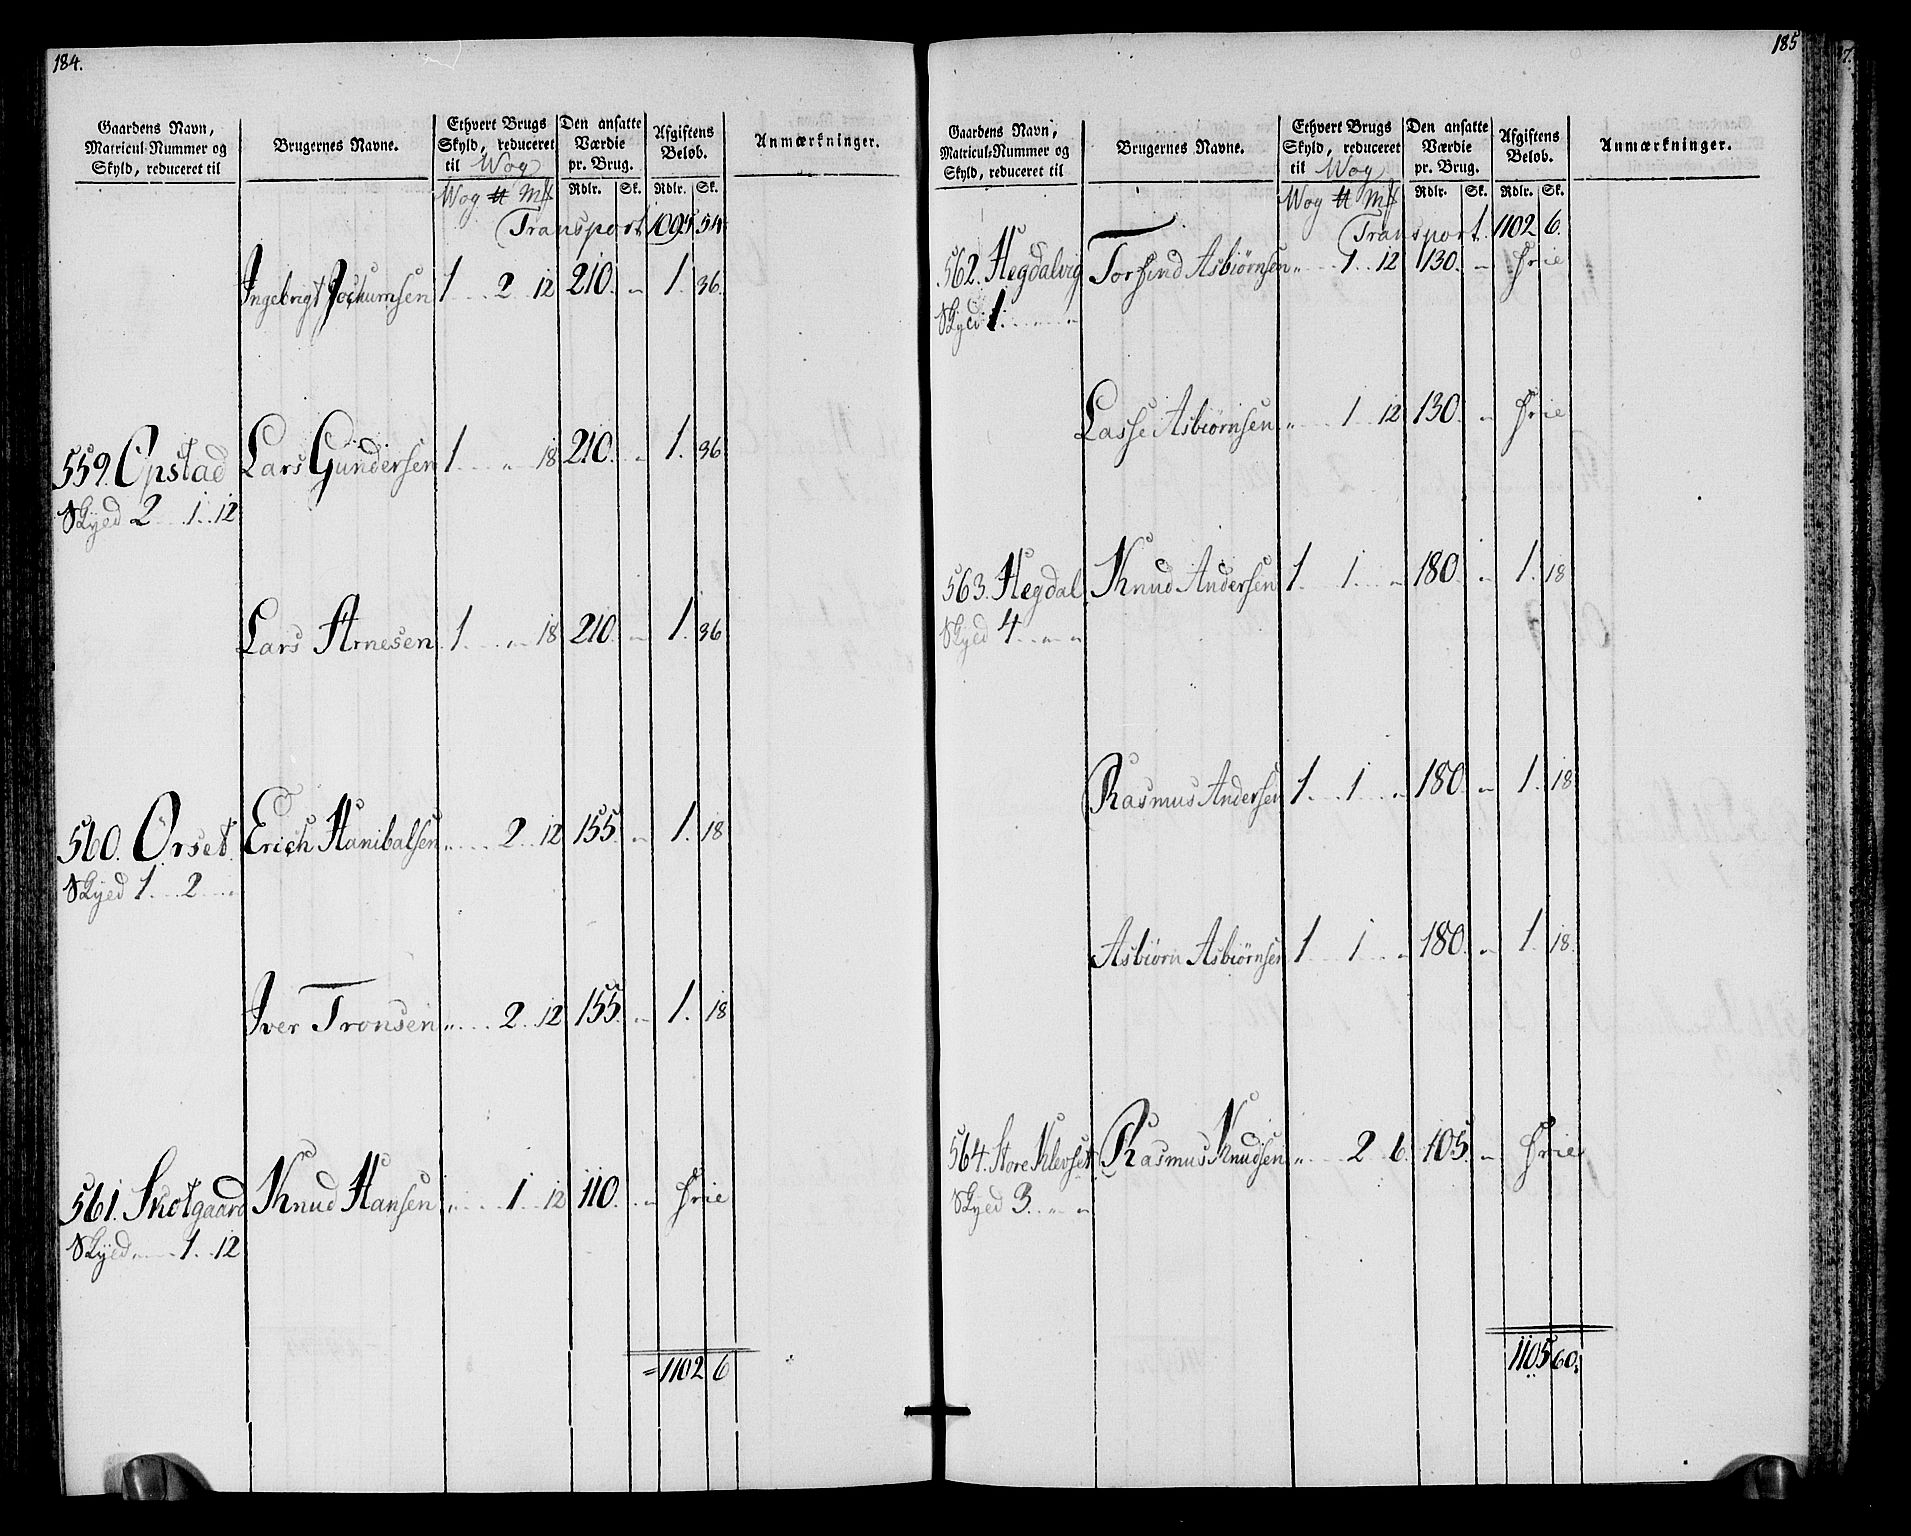 184.
Gaardens Navn, Matricul-Nummer og Skyld, reduceret til
Brugernes Navne.
Ethvert Brugs Skyld, reduceret til Wog
Den ansatte Værdie pr. Brug.
Afgiftens Beløb.
Anmærkninger.
Wog ⅌ Mk Rdlr. Sk. Rdlr. Sk.
Transport 1095 54
Ingebrigt Jochumsen 1 .. 2 .. 12 210. " 1. 36.
559. Opstad Lars Gundersen 1 .. " 18 210. " 1. 36
Skyed 2 .. 1 .. 12
Lars Arnesen 1 .. " 18 210. " 1. 36
560. Orset. Erich Hanibalsen " .. 2 .. 12 155. " 1. 18
Skyed 1 .. 2 .. "
Iver Tronsen " .. 2 .. 12 155. " 1. 18
561. Skotgaard Knud Hansen " .. 1 .. 12 110. " frie
Skyed .. 1 .. 12
= 1102 6
185
Gaardens Navn, Matricul-Nummer og Skyld, reduceret til
Brugernes Navne.
Ethvert Brugs Skyld, reduceret til Wog
Den ansatte Værdie pr. Brug.
Afgiftens Beløb.
Anmærkninger.
Wog ⅌ Mk Rdlr. Sk. Rdlr. Sk.
Transport. 1102 6.
562. Hegdalvig Torfind Asbiørnsen " .. 1 .. 12 130. " frie
Skyed 1 .. " .. "
Lasse Asbiørnsen " .. 1 .. 12 130. " frie
563. Hegdal Knud Andersen 1 .. 1 .. " 180. " 1. 18
Skyed 4 .. " .. "
Rasmus Andersen 1 .. 1 .. " 180. " 1. 18
Asbiørn Asbiørnsen 1 .. 1 .. " 180. " 1. 18.
564. Store Klevset Rasmus Knudsen " .. 2 6. 105. " frie
Skyed 3 .. " .. "
1105 60.